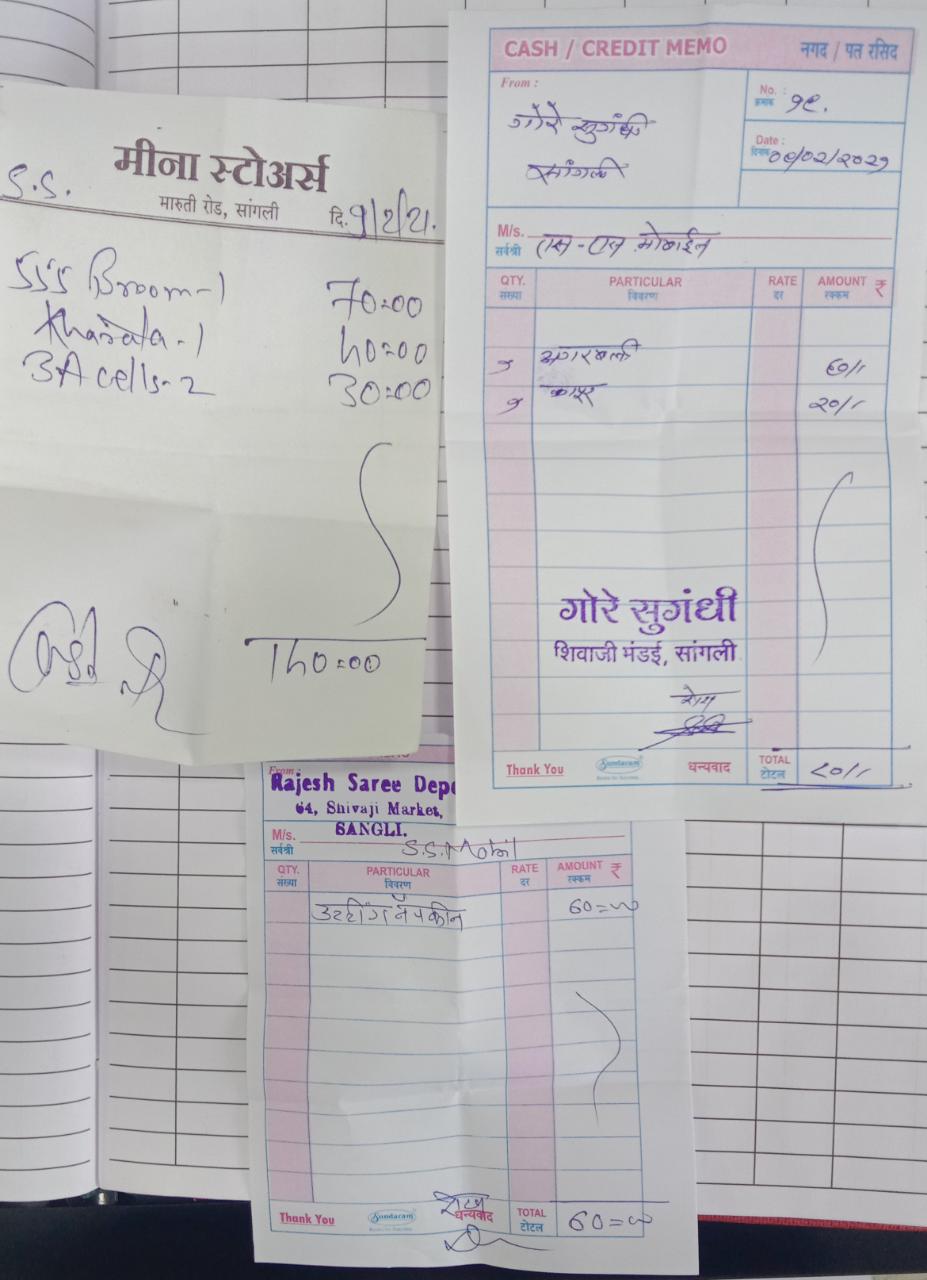 मीना स्टोअर्स
S.S.
मारुती रोड, सांगली दि. 9/2/21.
SSS Broom-1 70=00
Kharata-1 40=00
3A cells-2 30=00
140=00
CASH / CREDIT MEMO नगद / पत रसिद
From :
गोरे सुगंधी
सांगली
No. :
क्रमांक १९.
Date :
दिनांक ०९/०२/२०२१
M/s.
सर्वश्री एस-एस मोबाईल
QTY. PARTICULAR RATE AMOUNT ₹
संख्या विवरण दर रक्कम
अगरबत्ती ६०/-
१ कापूर २०/-
गोरे सुगंधी
शिवाजी मंडई, सांगली
Thank You Sundaram धन्यवाद TOTAL
टोटल ८०/-
From :
Rajesh Saree Depo
64, Shivaji Market,
SANGLI.
M/s.
सर्वश्री S.S.Mobil
QTY. PARTICULAR RATE AMOUNT ₹
संख्या विवरण दर रक्कम
60=00
Thank You Sundaram धन्यवाद TOTAL
टोटल 60=00